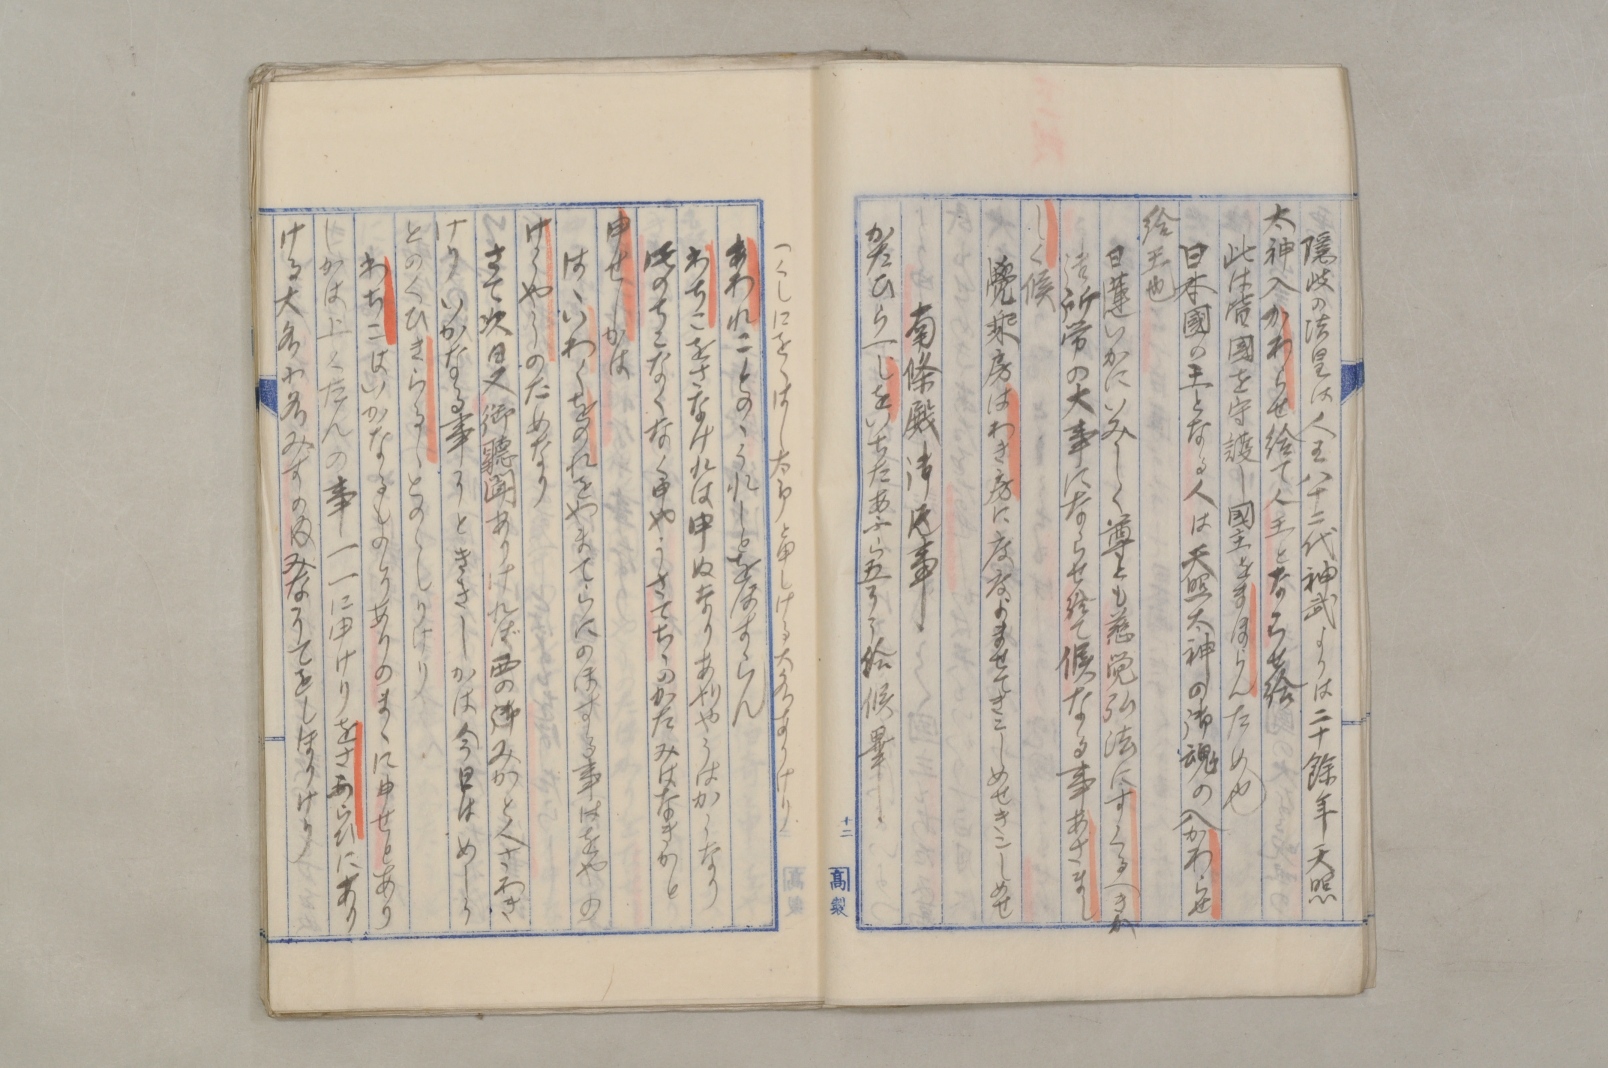 隠岐の法皇は人王八十二代神武よりは二十餘年天照
太神入かわらせ給て人王とならせ給
此は皆國を守護し國主をまほらんため也
日本國の王となる人は天照大神の御魂の入かわらせ
給王也
日蓮いかにいみしく尊とも慈覚弘法にすくるへきか
法所当の大事にならせ給て候なる事あさまし
しく候
覺乗房はわき房に度度よませてきこしめせきこしめせ
南條殿御返事
かたひら一しをいちたあふら五そう給候畢
つくしにをゝはしの太郎と申しける大名ありけり
あわれことのうれしとをほすらん
おちこをさなけれは申ぬなりあわれやうはかりなり
此のちこなくなく申やうさてちゝのかたみはなきかと
申せしかは
はゝいわくをのれをやまてらにのほする事はをやの
けうやうのためなり
さて次日又御聽聞ありけれは西の御みかと人さわき
けりいかなる事そときゝしかは今日はめしう
とのくひきらるゝとのゝしりけり
おちこはいかなるものそありのまゝに申せとあり
しかは上くたんの事一一に申けりをさあらひにあり
ける大名小名みすの内みなそてをしほりけり
十二
髙製